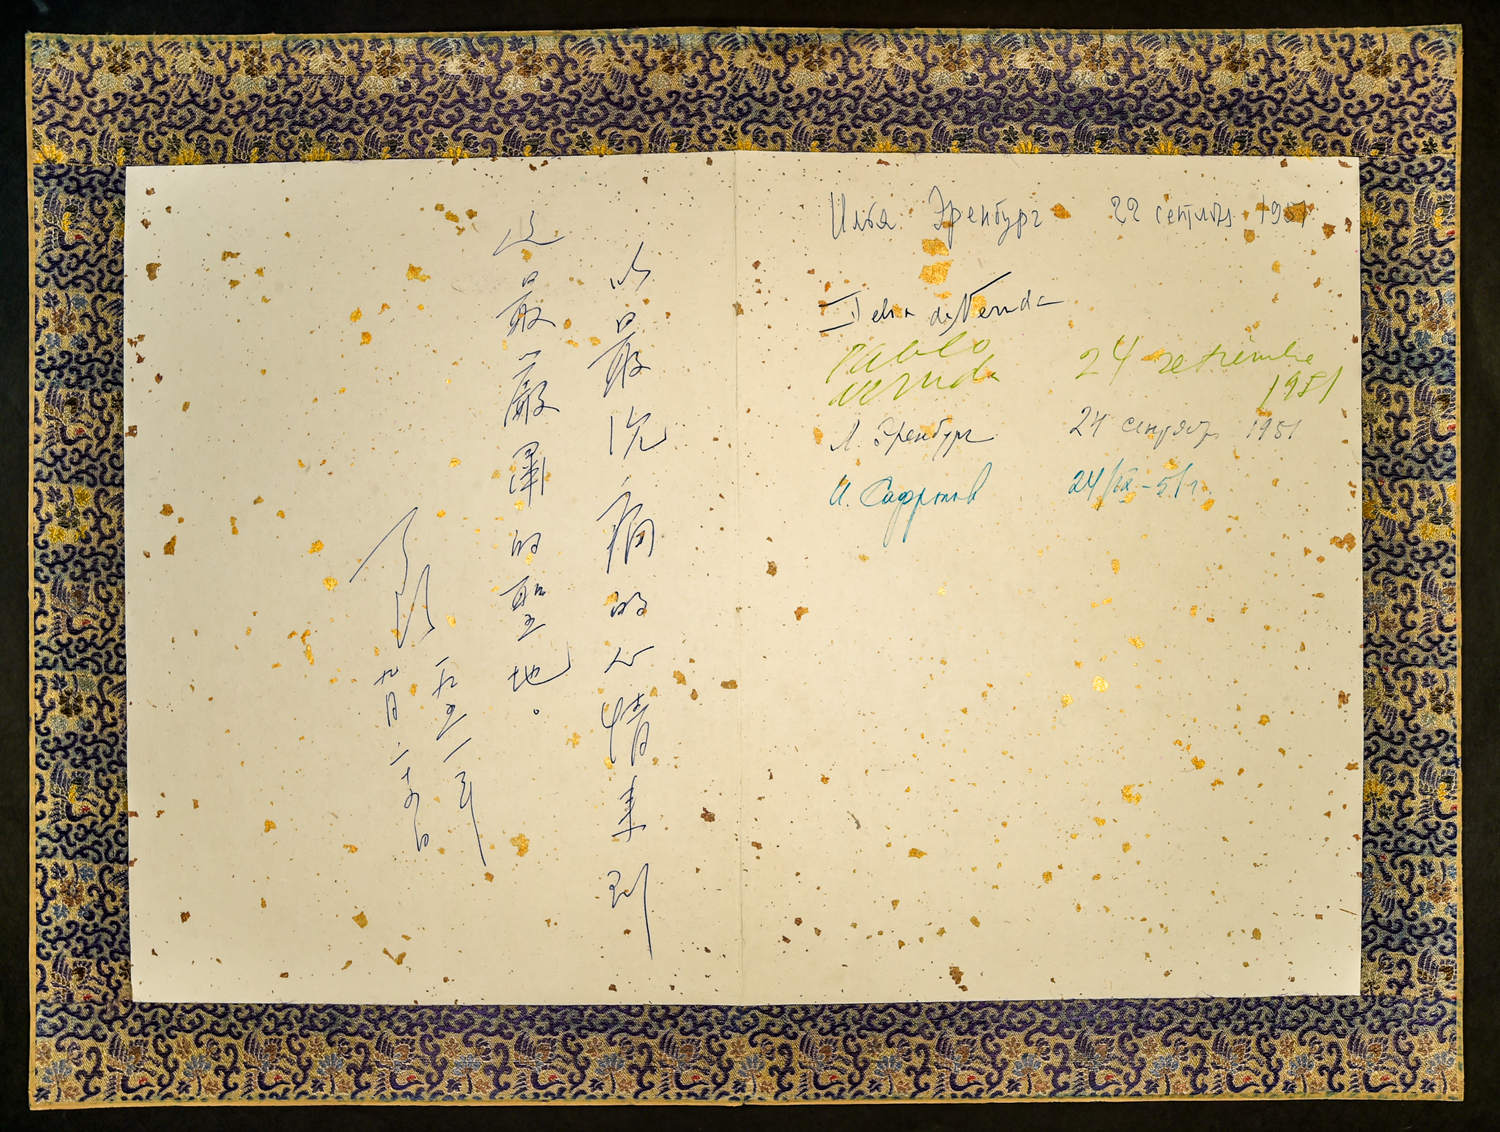 以最沉痛的心情来到
这最嚴肅的聖地。
丁玲
一九五一年
九月二十
Илья Эренбург 22 сентября 1951
Delia de Neruda
Pablo 24 setiembre
Neruda 1951
Л. Эренбург 24 сентября 1951
А. Софронов 24/IX-51г.